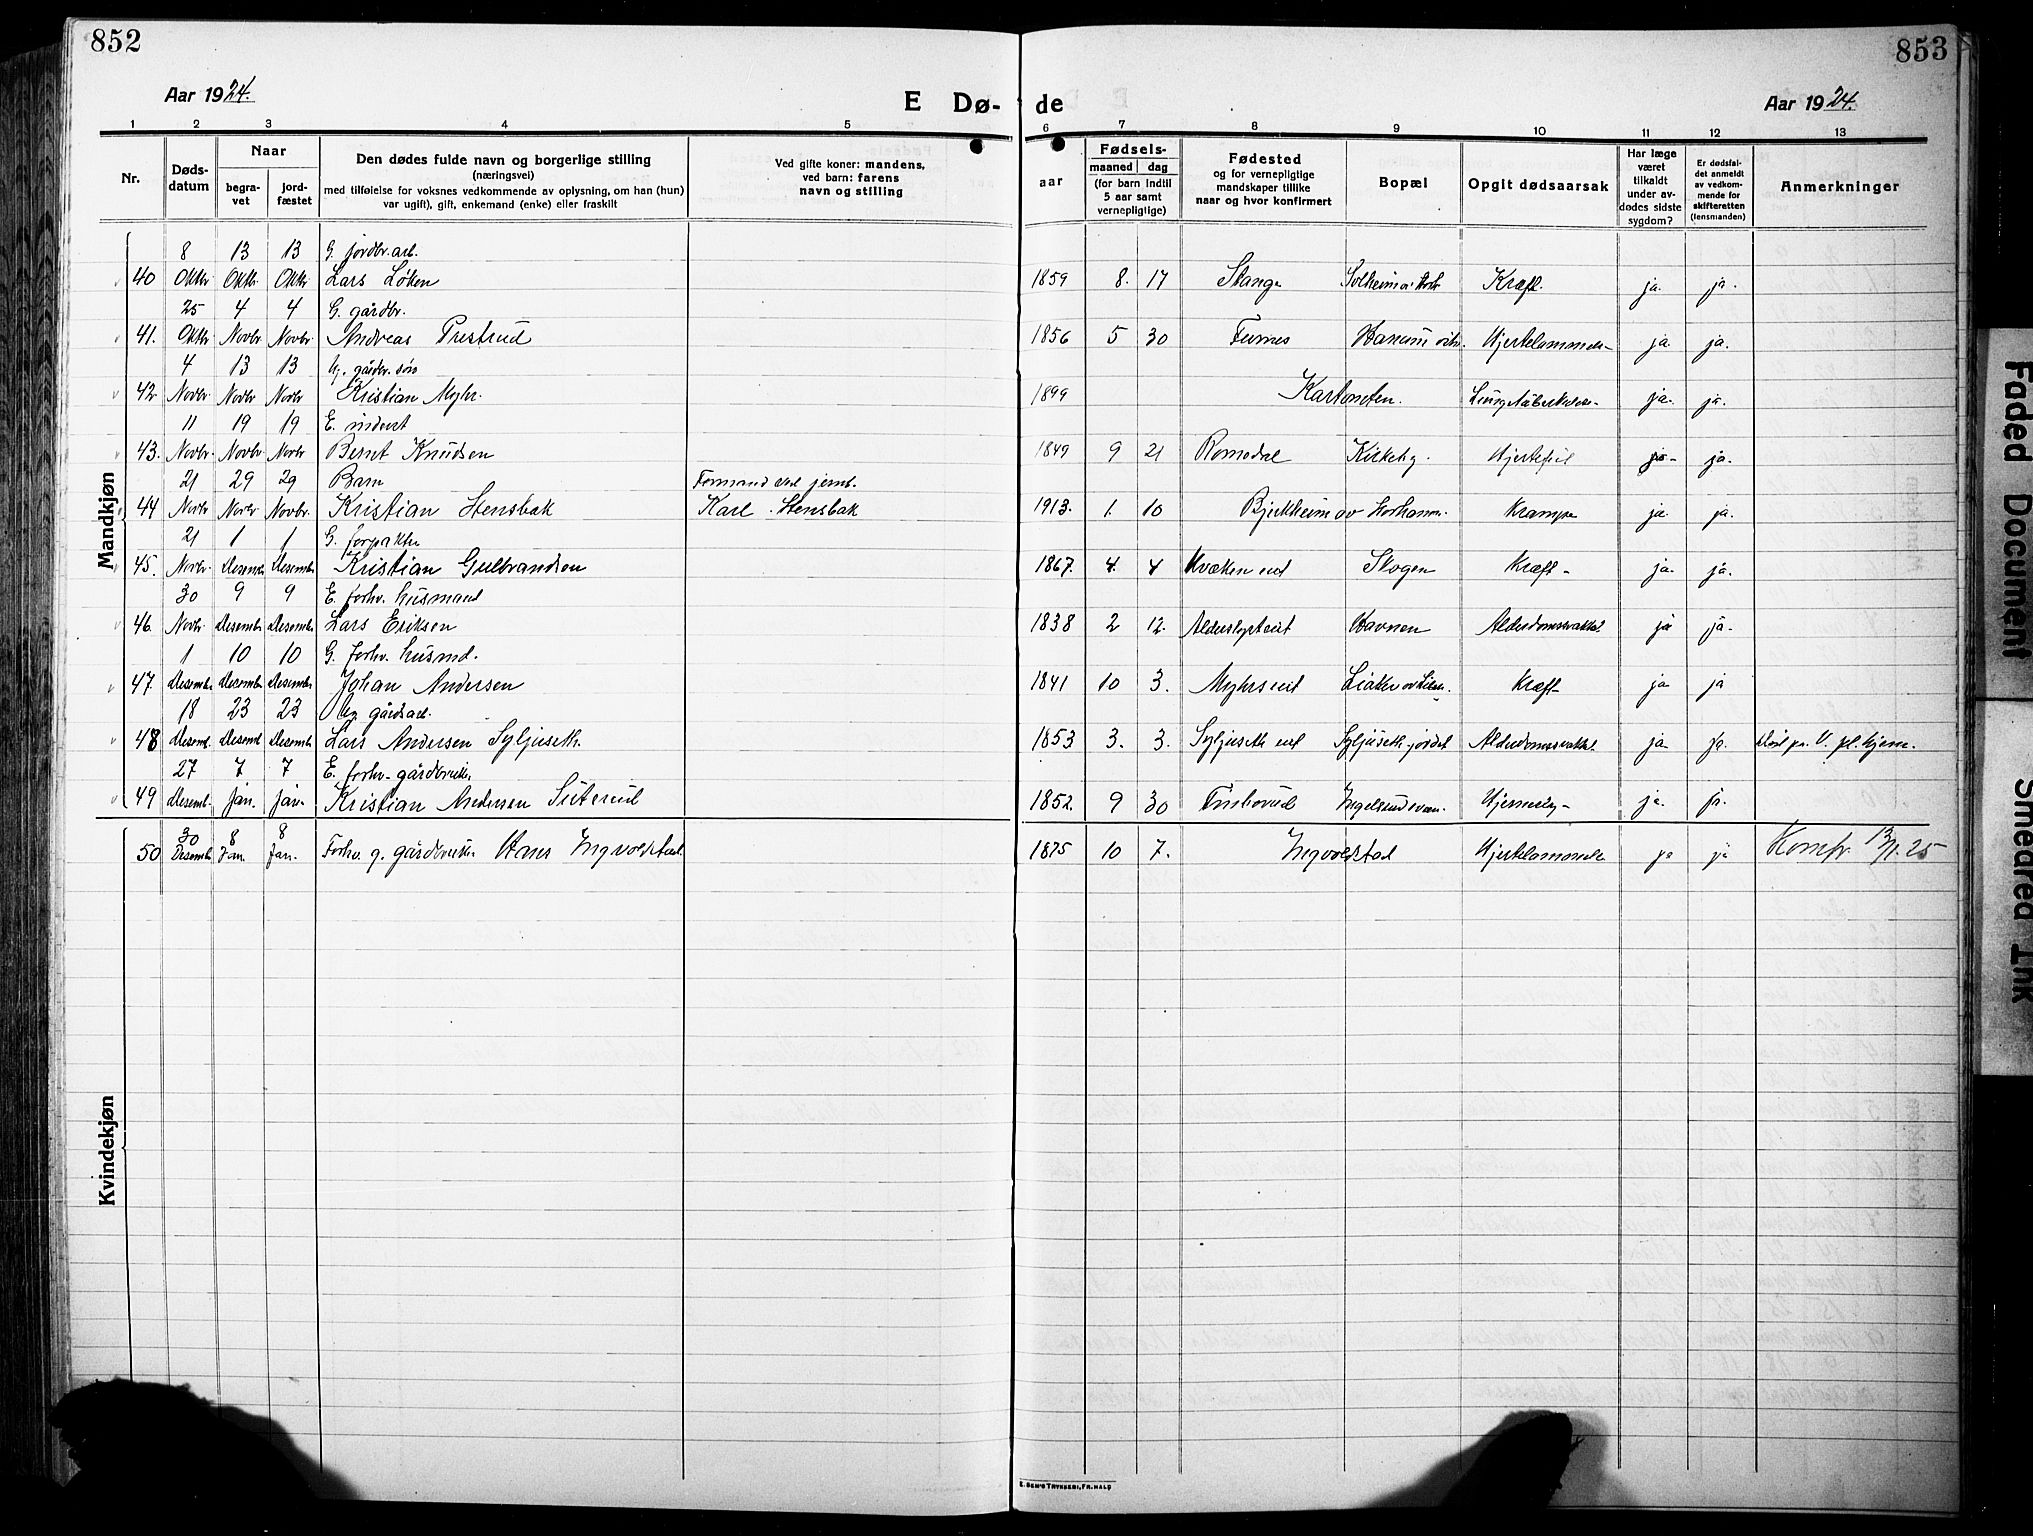 852
853
Aar 1924.
E Dø-
de
Aar 1924.
1 2 3 4 5 6 7 8 9 10 11 12 13
Nr.
Døds-
datum
Naar
begra-
vet
jord-
fæstet
Den dødes fulde navn og borgerlige stilling
(næringsvei)
med tilføielse for voksnes vedkommende av oplysning, om han (hun)
var ugift), gift, enkemand (enke) eller fraskilt
Ved gifte koner: mandens,
ved barn: farens
navn og stilling
aar
Fødsels-
maaned dag
(for barn indtil
5 aar samt
vernepligtige)
Fødested
og for vernepligtige
mandskaper tillike
naar og hvor konfirmert
Bopæl
Opgit dødsaarsak
Har læge
været
tilkaldt
under av-
dødes sidste
sygdom?
Er dødsfal-
det anmeldt
av vedkom-
mende for
skifteretten
(lensmanden)
Anmerkninger
Mandkjøn
8 13 13 G. jordbr. arb.
40 Oktbr Oktbr Oktbr Lars Løken 1859 8. 17 Stange Kræft. ja. ja.
25 4 4 G. gårdbr.
41. Oktbr Novbr Novbr Andreas Prestrud 1856 5 30 Furnes Hjertelammelse ja ja.
4 13 13 Ug. gårdbr. søn
42 Novbr Novbr Novbr Kristian Myhr. 1899 Lungetuberkulose ja. ja.
11 19 19 E. inderst
43. Novbr. Novbr. Novbr Bernt Knudsen 1849 9 21 Romedal Kirkeby. Hjertefeil ja ja.
21 29 29 Barn Formand ved jernb.
44 Novbr Novbr Novbr. Kristian Stensbak Karl Stensbak 1913. 1. 10 Bjerkheim av Krampe ja. ja.
21 1 1 G. forpakter
45. Novbr. Desembr Desembr Kristian Gulbrandsen 1867. 4. 4 Kvæken eed Skogen Kræft ja. ja.
30 9 9 E. forhv. husmand
46. Novbr. Desembr Desembr Lars Eriksen 1838 2 12. Alderslyst eit Havnen Alderdomssvakhet ja ja.
1 10 10 G. forhv. husmd.
47. Desembr Desembr Desembr Johan Andersen 1841 10 3. Myhrseit Kræft ja ja
18 23 23 Ug. gårdsarb.
48 Desemb. Desembr Desembr Lars Andersen Syljuseth. 1853 3. 3. Syljuseth eed Syljuseth-jordet Alderdomssvakhet ja. ja. Død pa. V. pl. hjem.
27 7 7 E. forhv. gårdbruker
49 Desemb. Jan. Jan. Kristian Andersen Sleterud 1852. 9 30 ja. ja.
Kvindekjøn
30 8 8
50 Desembr Jan. Jan. Forhv. g. gårdbruker Hans Ingvoldstad 1875 10 7. Ingvoldstad Hjertelammelse ja ja Komfr. 13/1. 25
E. SEM'S TRYKKERI, FR.HALD
Faded Document
Smeared Ink